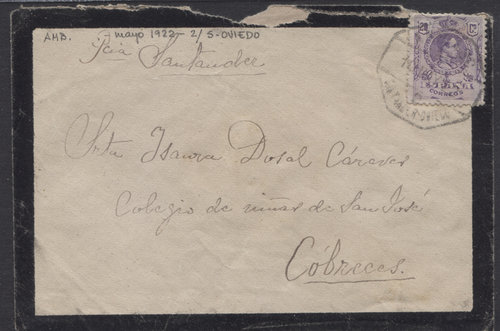 AMB. mayo 1922 - 2/ S-OVIEDO
Pcia Santander
CORREOS
Srta Isaura Dosal Cáraves
Colegio de niñas de San José
Cóbreces.